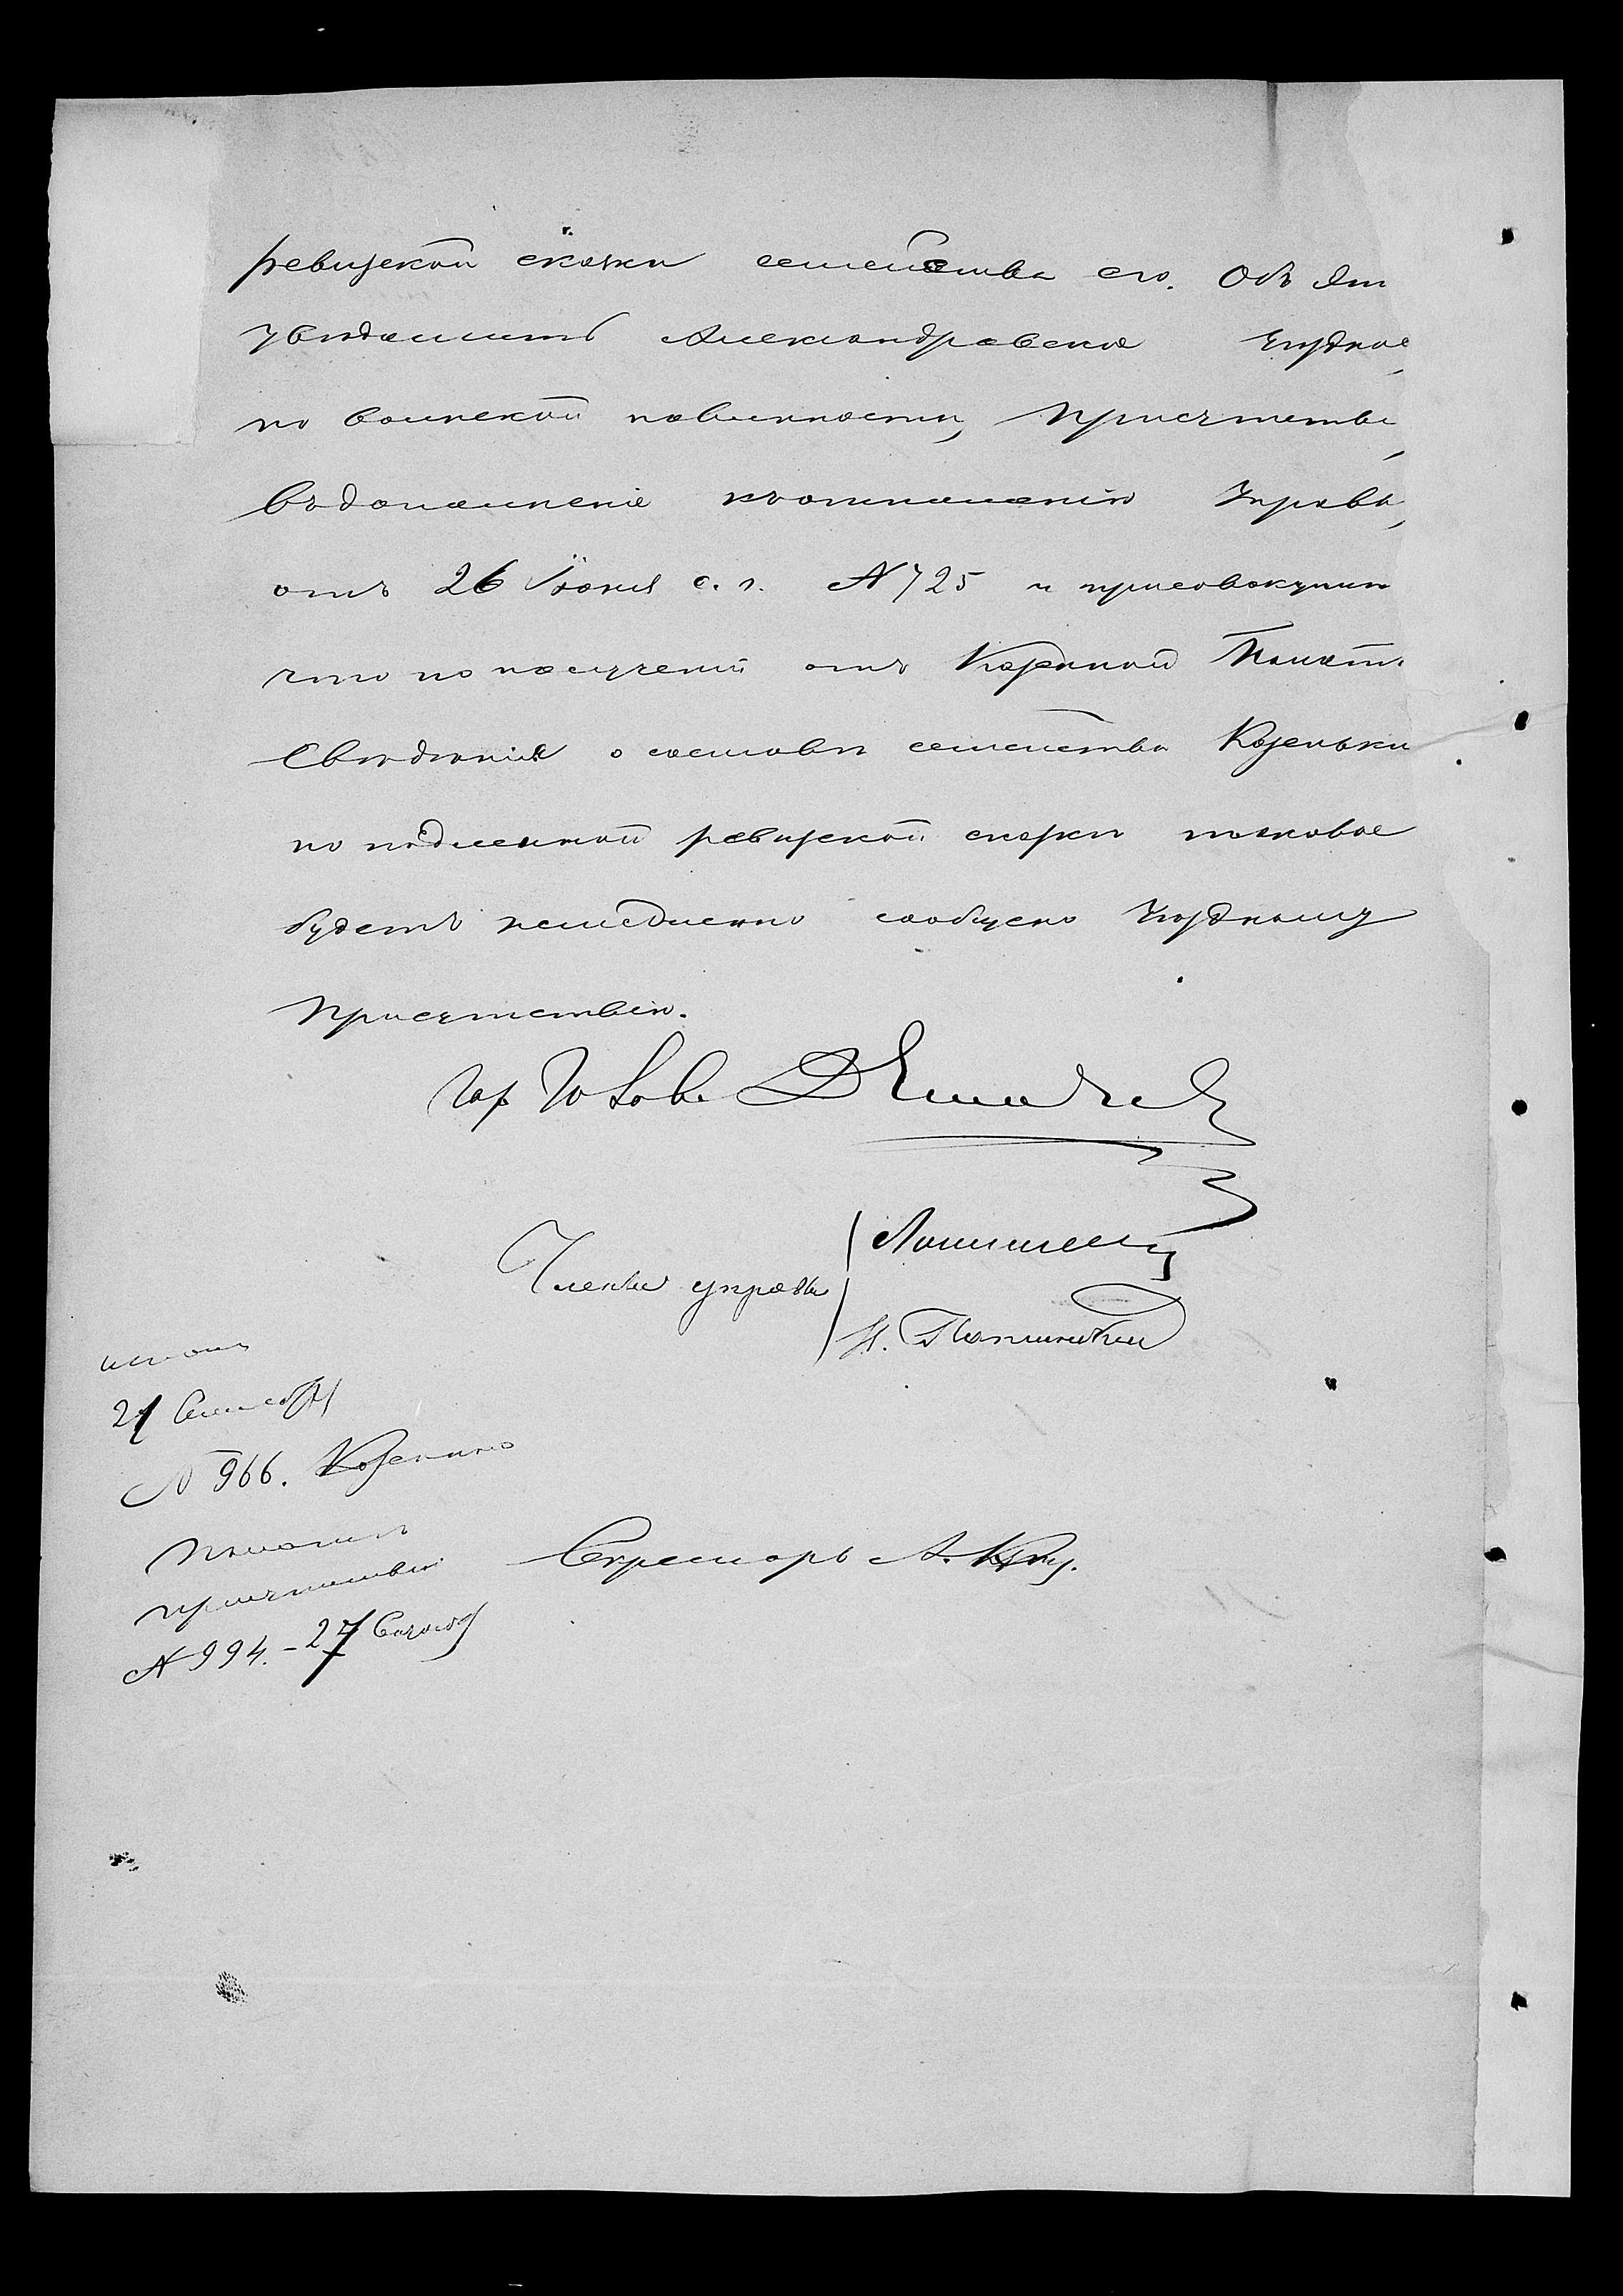 ревизской сказки семейства его. Объ этом
уведомить Александровское Уездное
по воинской повинности, Присутствие
въ дополнение къ отношению Управы,
отъ 26 Июня с. г. № 725 и присовокупить
что по получении отъ Казенной Палаты
сведения о составе семейства Козенки
по подлинной ревизской сказки таковое
будетъ немедленно сообщено Уездному
Присутствию.
Члены управы
исполн
27 Сентября
№ 966. Козенкно
присутствию
№ 994. - 27 Сентяб
Секретарь А.